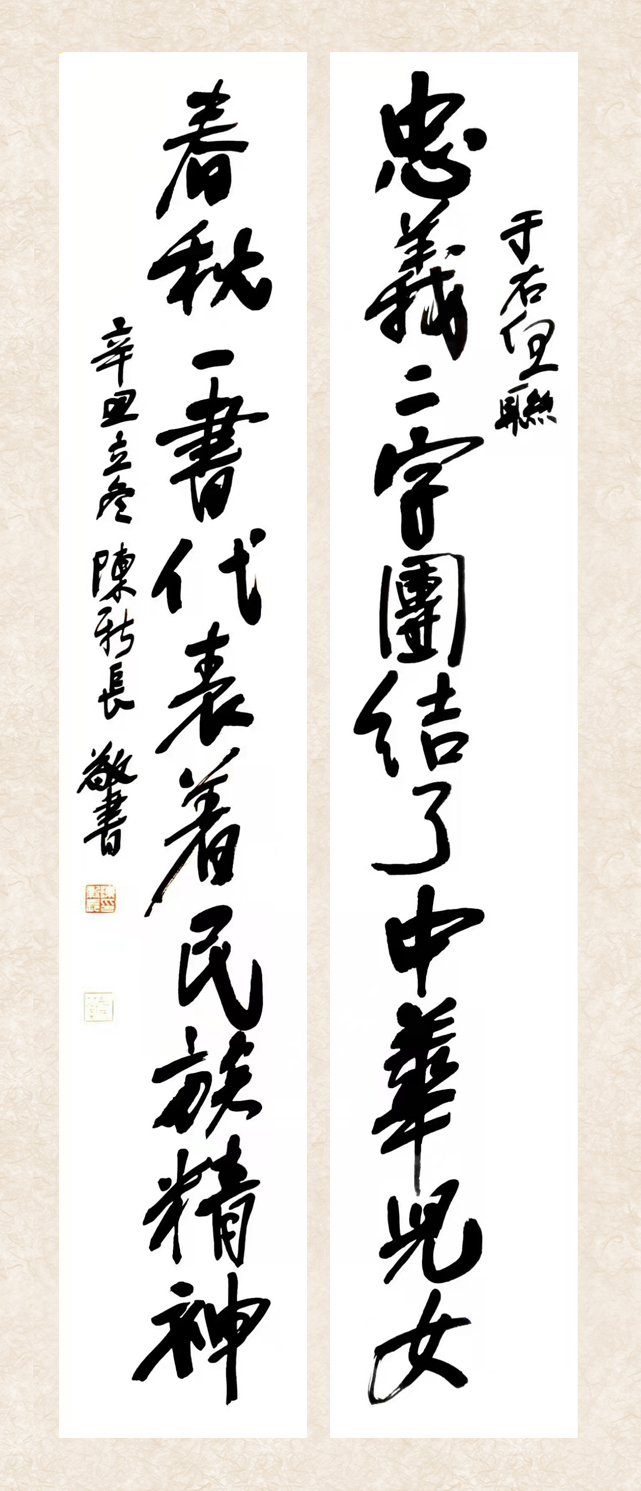 于右任聯
忠義二字團結了中華兒女
春秋一書代表着民族精神
辛丑立冬 陳新長 敬書